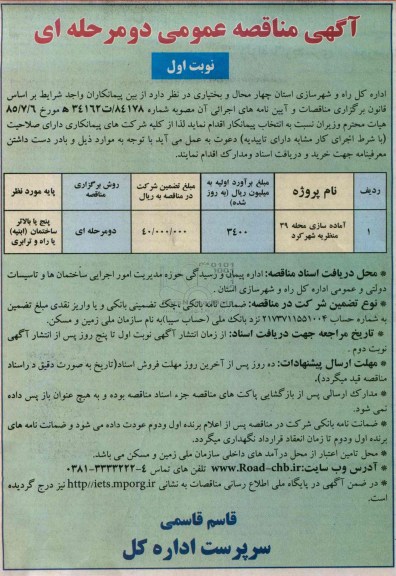 آگهی مناقصه عمومی دومرحله ای
نوبت اول
اداره کل راه و شهرسازی استان چهار محال و بختیاری در نظر دارد از بین پیمانکاران واجد شرایط بر اساس
قانون برگزاری مناقصات و آیین نامه های اجرائی آن مصوبه شماره ۸۴۱۷۸/ت۳۴۱۶۲ ه مورخ ۸۵/۷/۶
هیات محترم وزیران نسبت به انتخاب پیمانکار اقدام نماید لذا از کلیه شرکت های پیمانکاری دارای صلاحیت
(با شرط اجرای کار مشابه دارای تاییدیه) دعوت به عمل می آید با توجه به موارد ذیل و بادر دست داشتن
معرفینامه جهت خرید و دریافت اسناد ومدارک اقدام نمایند.
ردیف نام پروژه مبلغ برآورد اولیه به میلیون ریال (به روز شده) مبلغ تضمین شرکت در مناقصه به ریال روش برگزاری مناقصه پایه مورد نظر
۱ آماده سازی محله ۳۹ منظریه شهرکرد ۳۴۰۰ ۴۰/۰۰۰/۰۰۰ دومرحله ای پنج یا بالاتر ساختمان (ابنیه) یا راه و ترابری
* محل دریافت اسناد مناقصه: اداره پیمان و رسیدگی حوزه مدیریت امور اجرایی ساختمان ها و تاسیسات
دولتی و عمومی اداره کل راه و شهرسازی استان .
* نوع تضمین شرکت در مناقصه: ضمانت نامه بانکی ،چک تضمینی بانکی و یا واریز نقدی مبلغ تضمین
به شماره حساب ۲۱۷۳۷۱۱۵۵۱۰۰۴ نزد بانک ملی (حساب سیبا)به نام سازمان ملی زمین و مسکن.
* تاریخ مراجعه جهت دریافت اسناد: از زمان انتشار آگهی نوبت اول تا پنج روز پس از انتشار آگهی
نوبت دوم .
* مهلت ارسال پیشنهادات: ده روز پس از آخرین روز مهلت فروش اسناد(تاریخ به صورت دقیق دراسناد
مناقصه قید میگردد).
* مدارک ارسالی پس از بازگشایی پاکت های مناقصه جزء اسناد مناقصه بوده و به هیچ عنوان باز پس داده
نمی شود.
* ضمانت نامه بانکی شرکت در مناقصه پس از اعلام برنده اول ودوم عودت داده می شود و ضمانت نامه های
برنده اول ودوم تا زمان انعقاد قرارداد نگهداری میگردد.
* محل تامین اعتبار از محل درآمد های داخلی سازمان ملی زمین و مسکن می باشد.
* آدرس وب سایت:www.Road-chb.ir تلفن های تماس ۴-۳۳۳۳۲۲۲-۰۳۸۱
* در ضمن آگهی در پایگاه ملی اطلاع رسانی مناقصات به نشانی http//iets.mporg.ir نیز درج گردیده
است.
قاسم قاسمی
سرپرست اداره کل